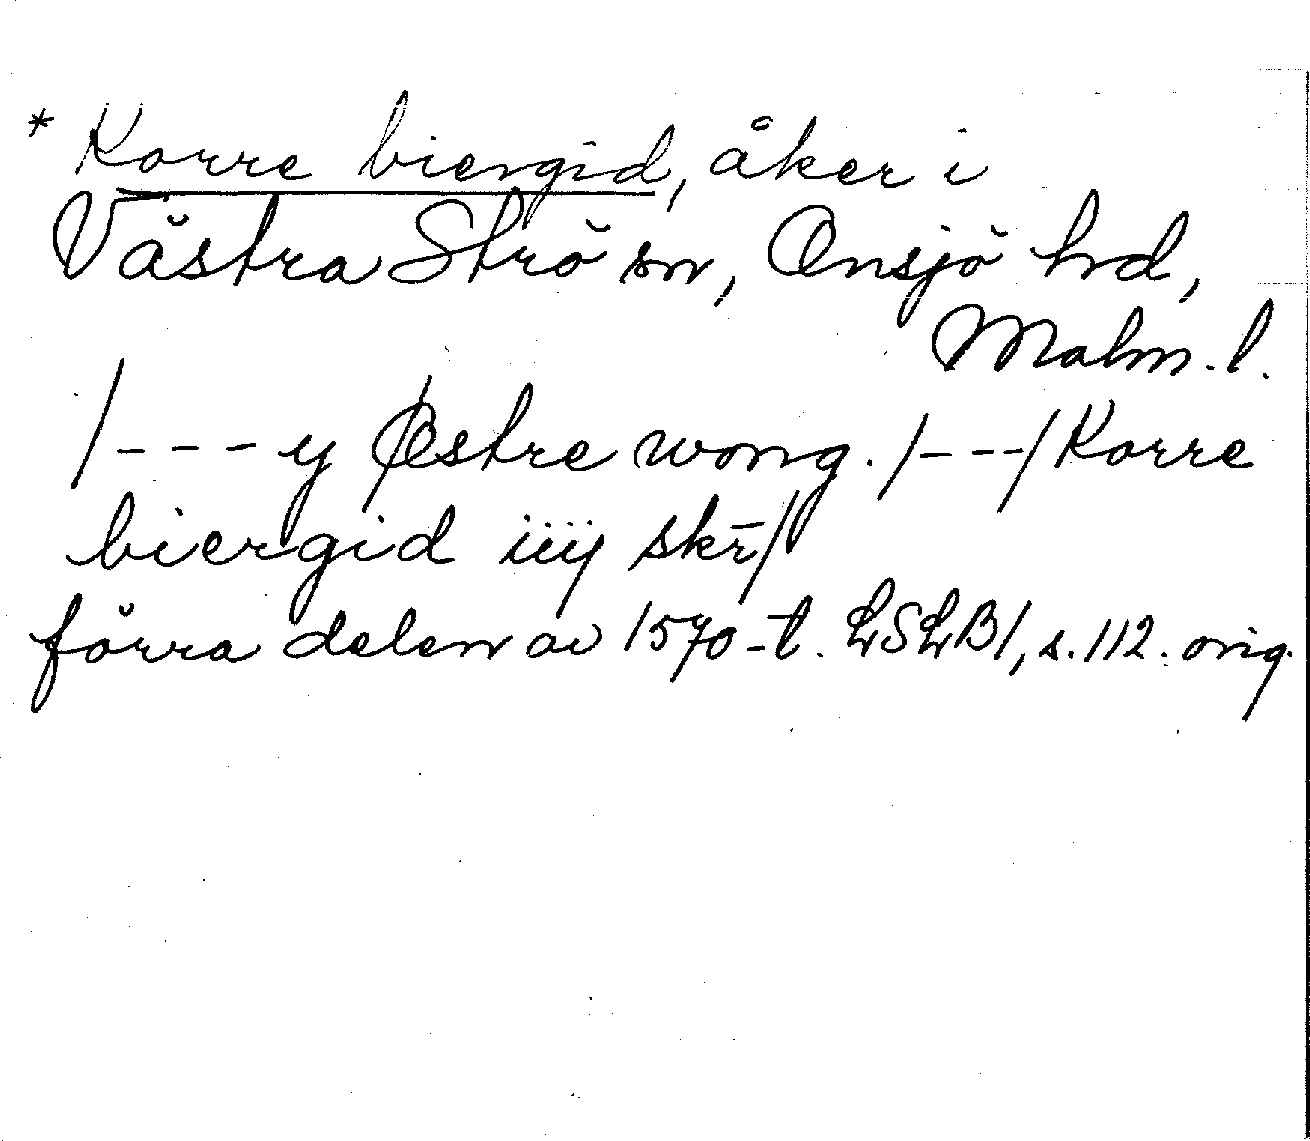 * Korre biergid, åker i
Västra Strö sn, Onsjö hd,
Malm. l.
/--- y Østre wong. /---/ Korre
biergid iiij skr̄/
förra delen av 1570-t. LSLB1, s. 112. orig.